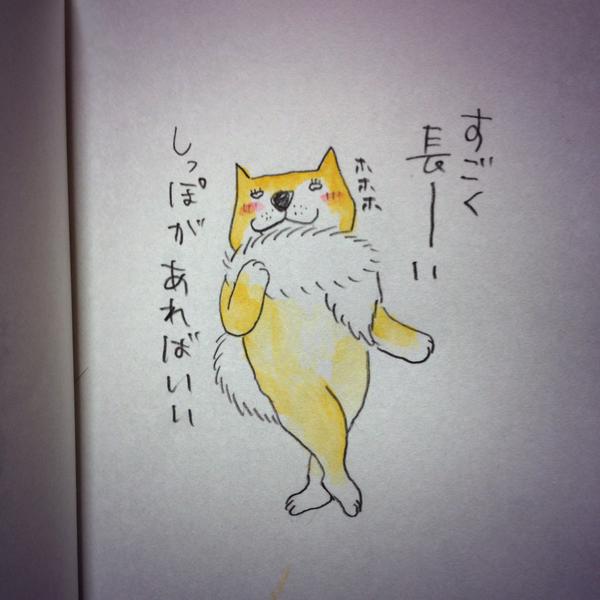 すごく
長ーい
ホホホ
しっぽがあればいい